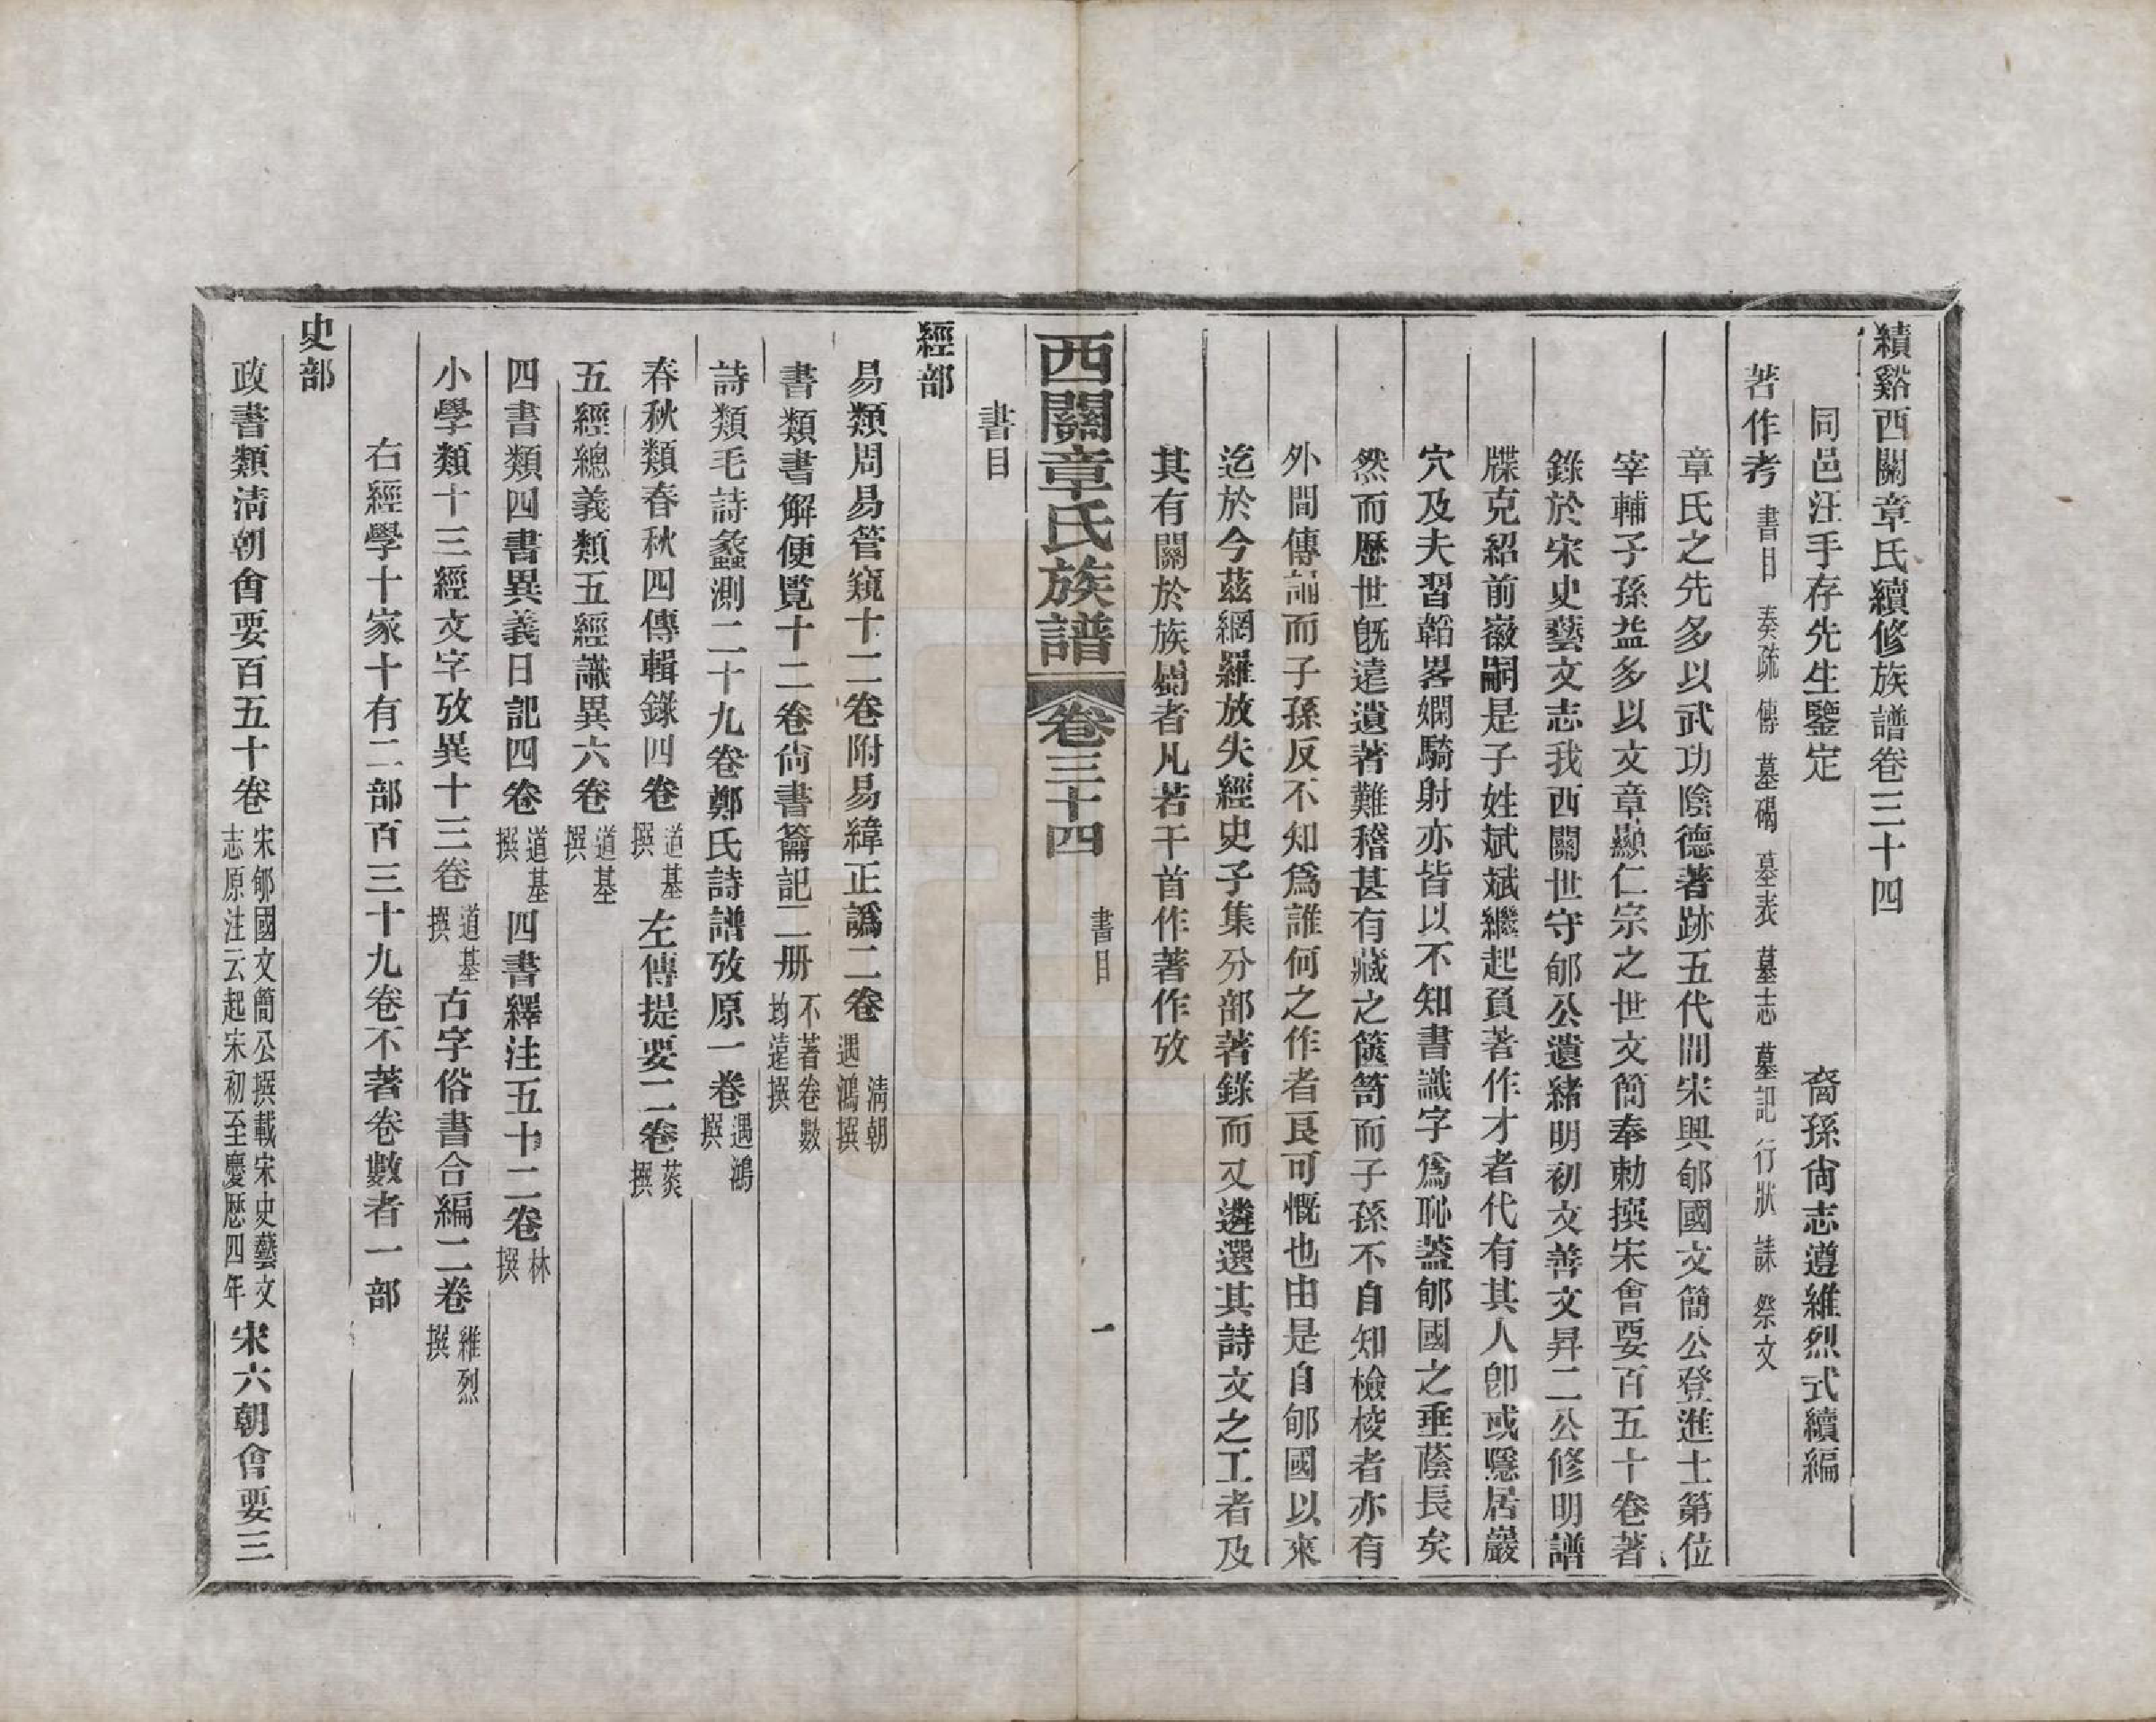 績谿西關章氏續修族譜卷三十四
同邑汪手存先生鑒定　裔孫尙志遵維烈式續編
著作考　書目　奏疏　傳　墓碣　墓表　墓志　墓記　行狀　誄　祭文
章氏之先多以武功陰德著跡五代間宋興郇國文簡公登進士第位
宰輔子孫益多以文章顯仁宗之世文簡奉勅撰宋會要百五十卷著
錄於宋史藝文志我西關世守郇公遺緒明初文善文昇二公修明譜
牒克紹前徽嗣是子姓斌斌繼起負著作才者代有其人卽或隱居巖
穴及夫習韜畧嫻騎射亦皆以不知書識字爲恥蓋郇國之垂蔭長矣
然而歷世旣遠遺著難稽甚有藏之篋笥而子孫不自知檢校者亦有
外間傳誦而子孫反不知爲誰何之作者良可慨也由是自郇國以來
迄於今茲網羅放失經史子集分部著錄而又遴選其詩文之工者及
其有關於族屬者凡若干首作著作攷
西關章氏族譜　卷三十四　書目　一
書目
經部
易類周易管窺十二卷附易緯正譌二卷　淸朝遇鴻撰
書類書解便覽十二卷尙書籥記二册　不著卷數均遠撰
詩類毛詩蠡測二十九卷鄭氏詩譜攷原一卷　遇鴻撰
春秋類春秋四傳輯錄四卷　道基撰　左傳提要二卷　菼撰
五經總義類五經識異六卷　道基撰
四書類四書異義日記四卷　道基撰　四書繹注五十二卷　林撰
小學類十三經文字攷異十三卷　道基撰　古字俗書合編二卷　維烈撰
右經學十家十有二部百三十九卷不著卷數者一部
史部
政書類淸朝會要百五十卷　宋郇國文簡公撰載宋史藝文志原注云起宋初至慶歷四年　宋六朝會要三